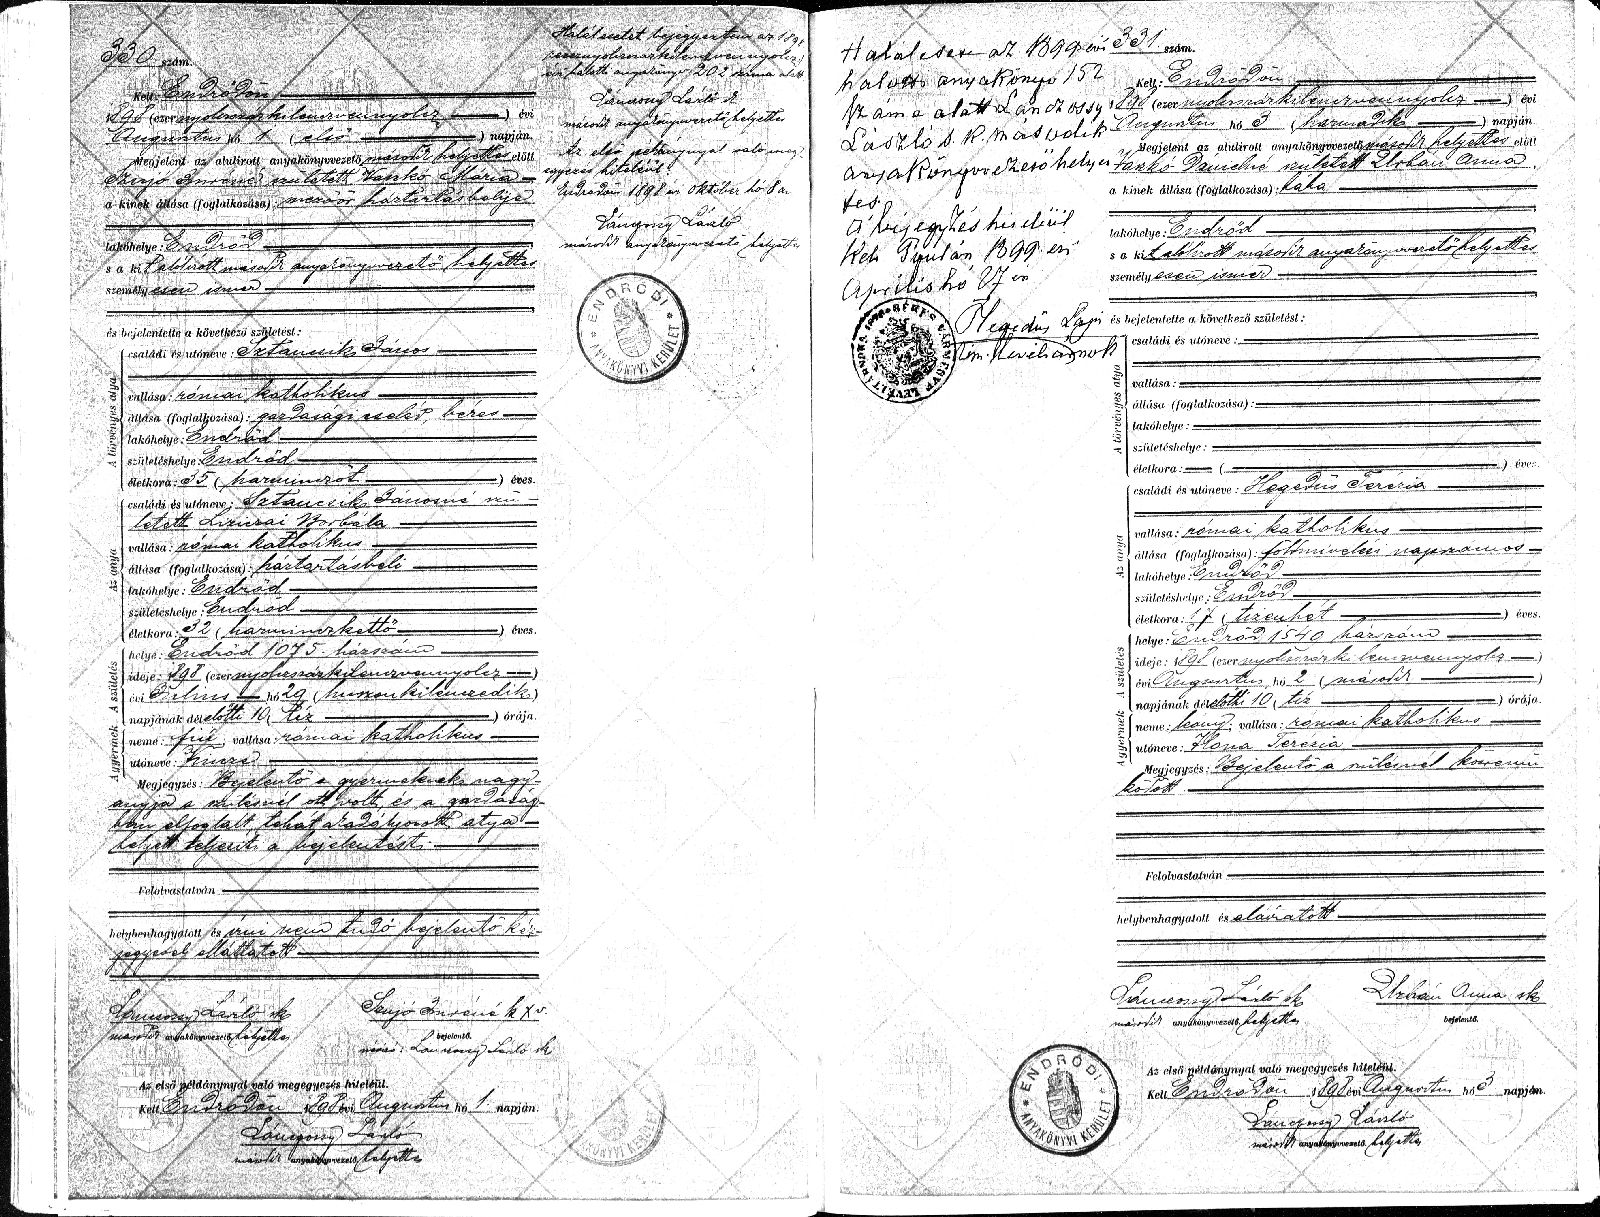 330 szám.
Kelt: Endrődön
1898 (ezernyolcszázkilencvennyolcz) évi
Augustus hó 1 (első) napján.
Megjelent az alulirott anyakönyvvezető második helyettes előtt
született Vankó Mária
a kinek állása (foglalkozása): háztartásbelije
lakóhelye: Endrőd
s a kit alulirott második anyakönyvvezető helyettes
személyesen ismer
és bejelentette a következő születést:
A törvényes atyja
családi és utóneve: Sztancsik János
vallása: római katholikus
állása (foglalkozása): gazdasági cseléd, béres
lakóhelye: Endrőd
születéshelye: Endrőd
életkora: 35 (harminczöt) éves.
Az anya
családi és utóneve: Sztancsik Jánosné szü-
letett Borbála
vallása: római katholikus
állása (foglalkozása): háztartásbeli
lakóhelye: Endrőd
születéshelye: Endrőd
életkora: 32 (harminczkettő) éves.
A születés
helye: Endrőd 1075 házszám
ideje: 1898 (ezernyolcszázkilencvennyolcz)
évi Julius hó 29 (huszonkilenczedik)
napjának délelőtti 10 (tíz) órája.
A gyermek
neme: fiú; vallása: római katholikus
utóneve: Vincze
Megjegyzés: Bejelentő a gyermeknek nagy-
anyja a szülésnél ott volt, és a gazdaság-
ban elfoglalt, tehát akadályozott atya
helyett teljesíti a bejelentést.
Felolvastatván
helybenhagyatott és írni nem tudó bejelentő kéz-
jegyével elláttatott
László sk
második anyakönyvvezető helyettes
bejelentő.
László sk
Az első példánynyal való megegyezés hiteléül.
Kelt Endrődön 1898 évi Augustus hó 1 napján.
László
második anyakönyvvezető helyettes
Halálesetet bejegyeztem az 1898
halotti anyakönyv 202 száma alatt
László sk
második anyakönyvvezető helyettes
Az első példánynyal való meg-
egyezés hiteléül.
Endrődön 1898 évi október hó 8 án
László
második anyakönyvvezető helyettes
ENDRŐDI
ANYAKÖNYVI KERÜLET
Halálesete az 1899 évi
halotti anyakönyv 152
száma alatt
László s.k. második
anyakönyvvezető helyet
tes.
A bejegyzés hiteléül
Kelt Gyulán 1899. évi
Április hó 27 én
Hegedűs
BÉKÉS VÁRMEGYE LEVÉLTÁRNOKA
331 szám.
Kelt: Endrődön
1898 (ezernyolcszázkilencvennyolcz) évi
Augustus hó 3 (harmadik) napján
Megjelent az alulirott anyakönyvvezető második helyettes előtt
született Urbán Anna
a kinek állása (foglalkozása): bába
lakóhelye: Endrőd
s a kit alulirott második anyakönyvvezető helyettes
személyesen ismer
és bejelentette a következő születést:
A törvényes atyja
családi és utóneve:
vallása:
állása (foglalkozása):
lakóhelye:
születéshelye:
életkora: ( ) éves.
Az anya
családi és utóneve: Hegedűs Terézia
vallása: római katholikus
állása (foglalkozása): földmivelési napszámos
lakóhelye: Endrőd
születéshelye: Endrőd
életkora: 17 (tizenhét) éves.
A születés
helye: Endrőd 1540 házszám
ideje: 1898 (ezernyolcszázkilencvennyolcz)
évi Augustus hó 2 (második)
napjának délelőtti 10 (tíz) órája.
A gyermek
neme: leány; vallása: római katholikus
utóneve: Ilona Terézia
Megjegyzés: Bejelentő a szülésnél közremü
ködött
Felolvastatván
helybenhagyatott és aláiratott
László sk
második anyakönyvvezető helyettes
Urbán Anna sk
bejelentő.
Az első példánynyal való megegyezés hiteléül.
Kelt Endrődön 1898 évi Augustus hó 3 napján.
László
második anyakönyvvezető helyettes
ENDRŐDI
ANYAKÖNYVI KERÜLET